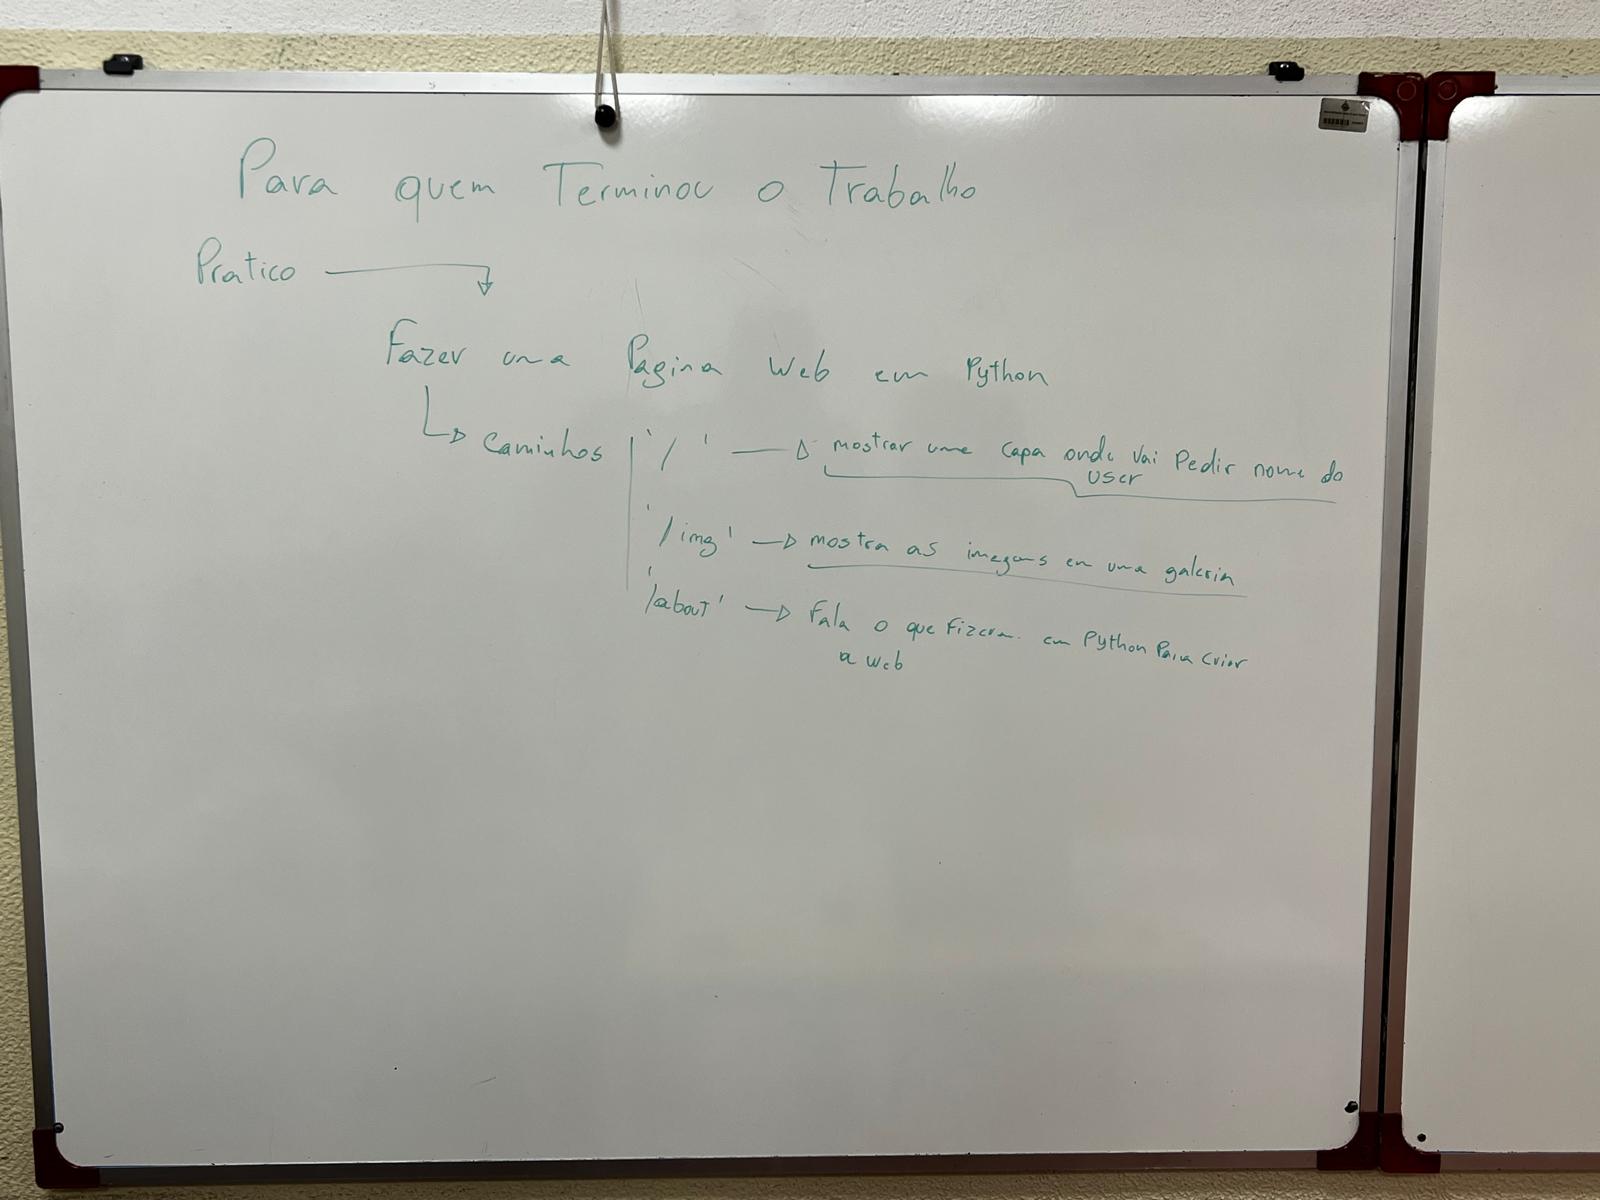 Para quem Terminou o Trabalho
Pratico
Fazer uma Pagina Web em Python
Caminhos '/' mostrar uma capa onde Vai Pedir nome do
user
'/img' mostra as imagens em uma galeria
'/about' Fala o que Fizeram em Python Para Criar
a web